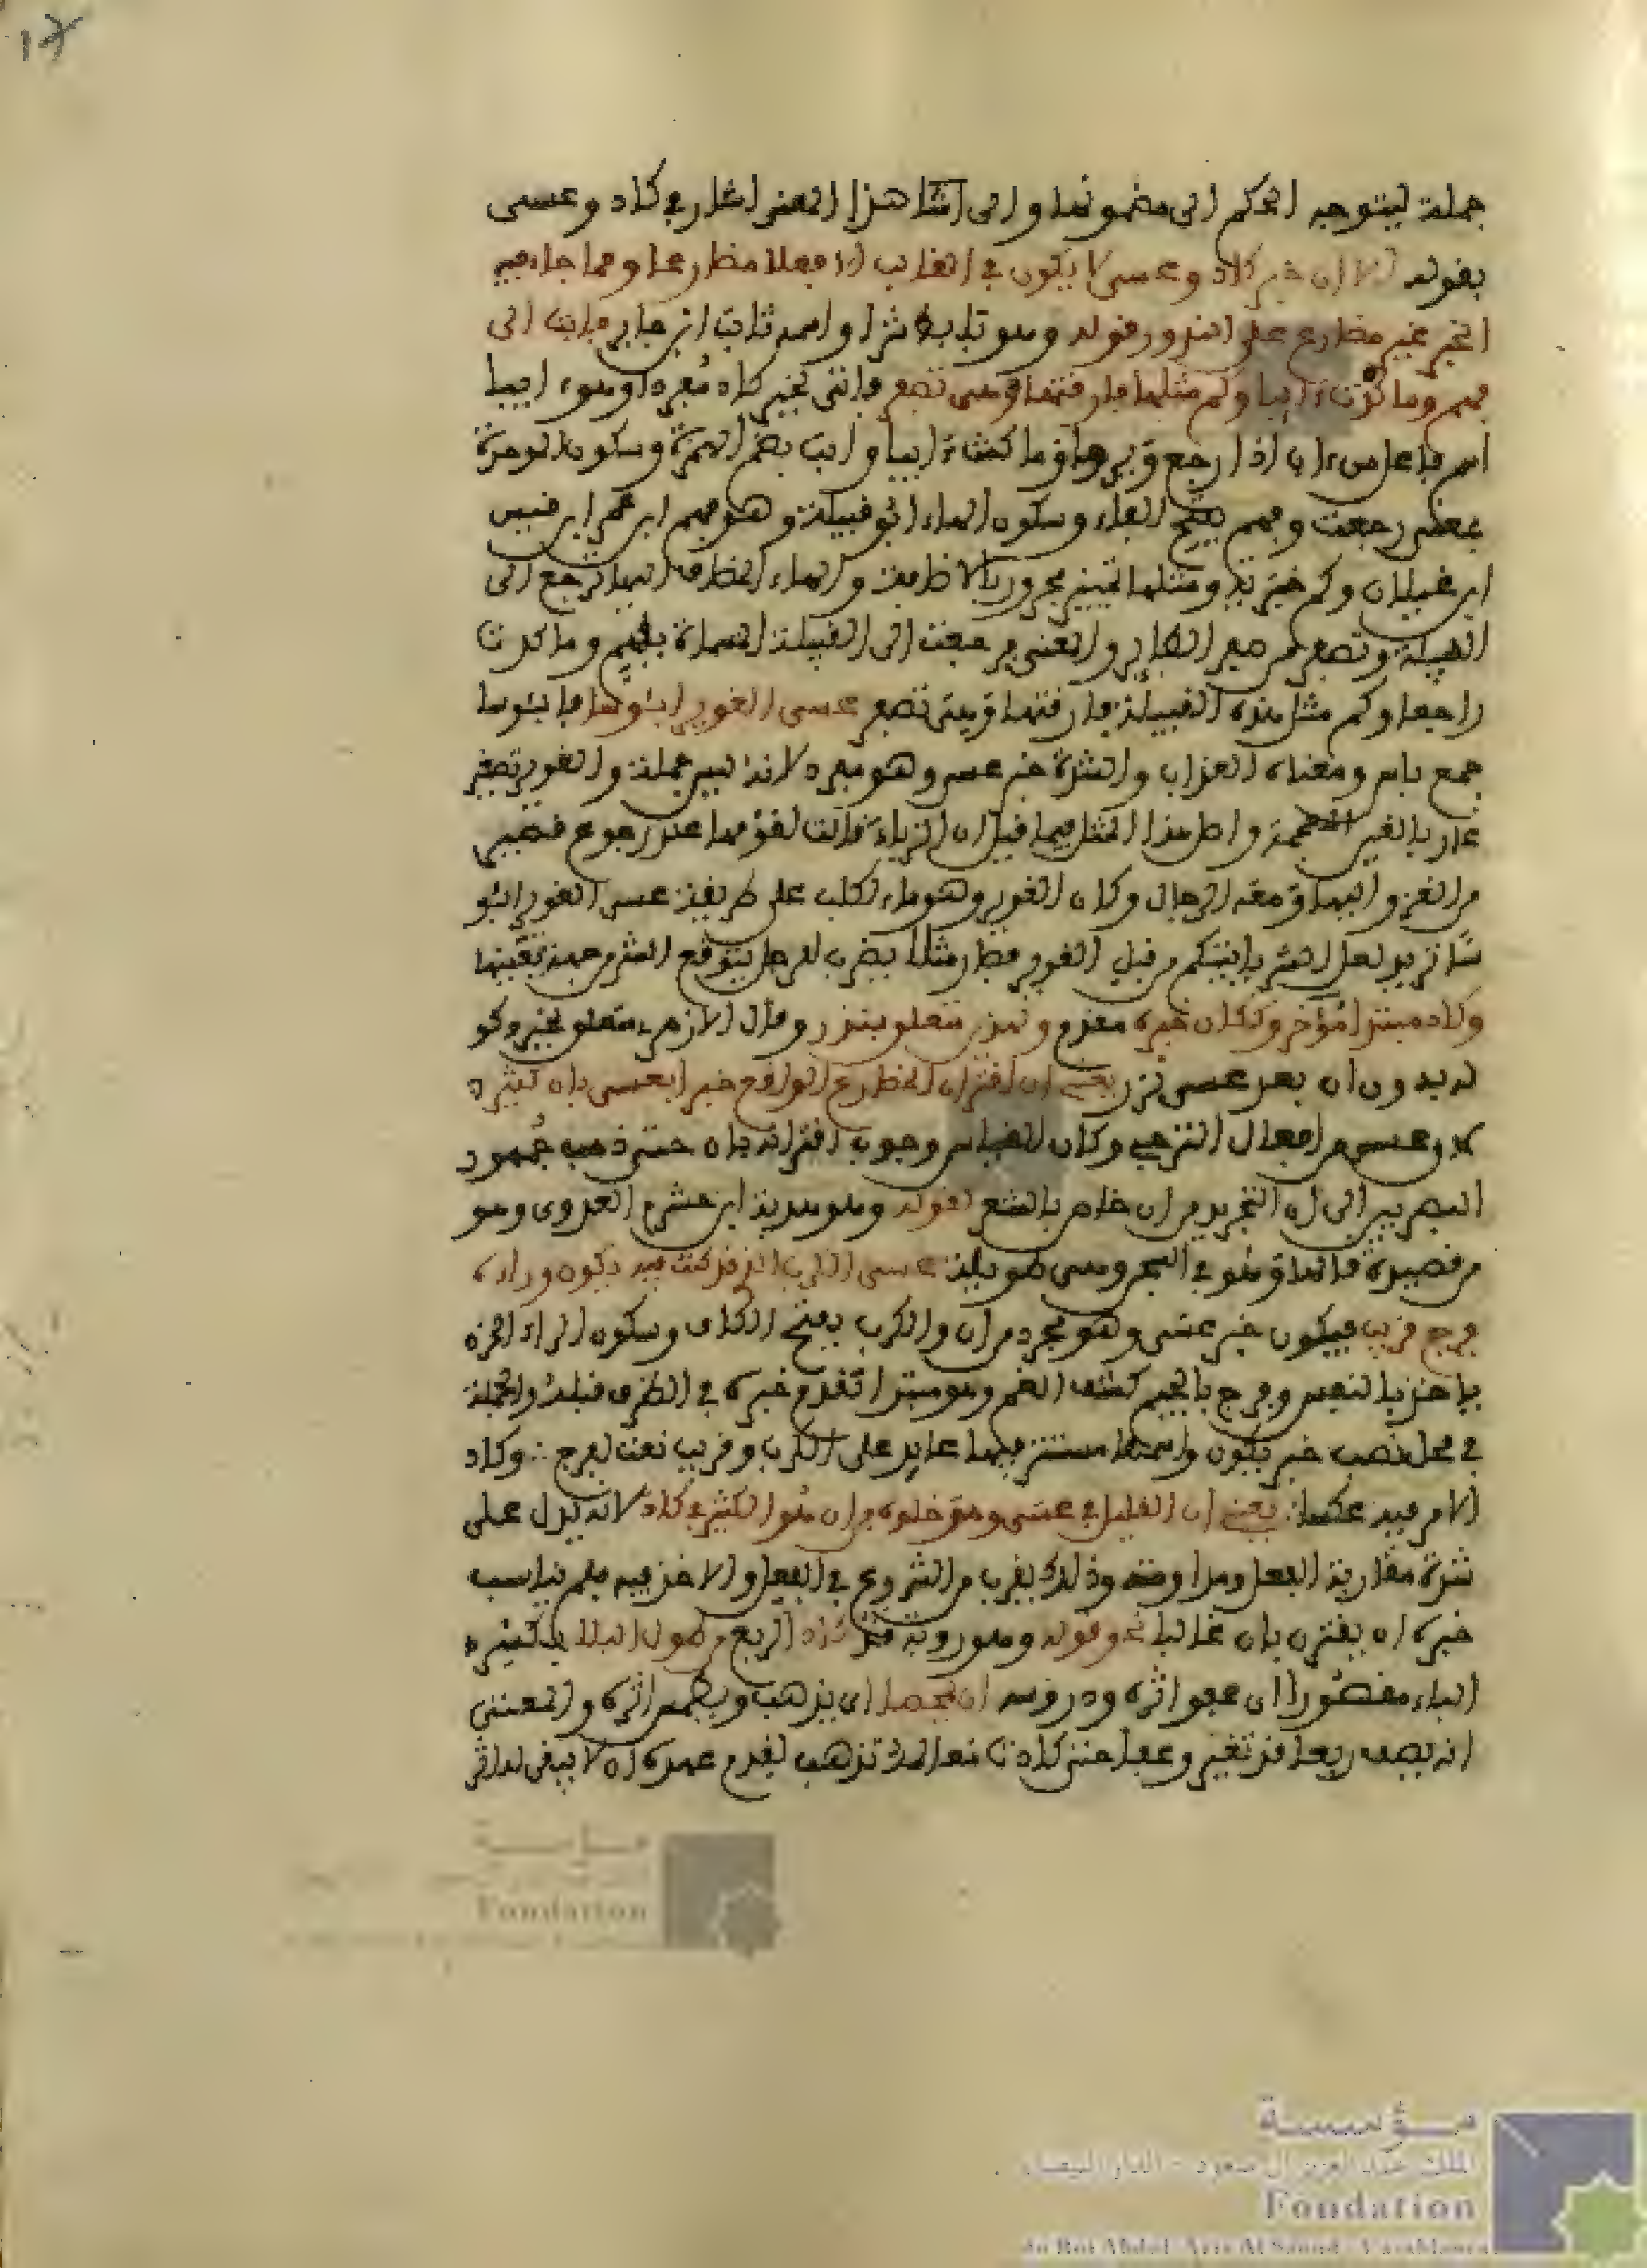 جملة ليتوجه الحكم الى مضمونها والى هذا المعنى اشار في كاد وعسى
بقوله الا ان خبر كاد وعسى لا يكون في الغالب الا فعلا مضارعا ومما جاء فيه
الخبر غير مضارع على النزور قوله وهو تابط شرا واسمه ثابت ابن جابر فابت الى
فهم وما كدت ءايبا وكم مثلها فارقتها وهي تصفر فاتى بخبر كاد مفردا وهو ءايبا
اسم فاعل من ءاب اذا رجع ويروى وما كنت ءايبا وابت بضم الهمزة وسكون الموحدة
بمعنى رجعت وفهم بفتح الفاء وسكون الهاء ابو قبيلة وهو فهم ابن عمر ابن قيس
ابن غيلان وكم خبرية ومثلها تمييز مجرور بالاضافة والهاء المضاف اليها ترجع الى
القبيلة وتصفر من صفير الطاير والمعنى فرجعت الى القبيلة المسماة بفهم وما كدت
راجعا وكم مثل هذه القبيلة فارقتها وهي تصفر عسى الغوير ابئوسا فابئوسا
جمع باس ومعناه العذاب والشدة خبر عسى وهو مفرد لانه ليس جملة والغوير تصغير
غار بالغين المعجمة واصل هذا المثل فيما قيل ان الزباء قالت لقومها عند رجوع قصير
من الغزو اليها ومعه الرجال وكان الغوير وهو ماء لكلب على طريقه عسى الغوير ابئو
سا تريد لعل الشر ياتيكم من قبل الغوير فصار مثلا يضرب للرجل يتوقع الشر من جهة بعينها
وكاد مبتدا مؤخر وككان خبره مقدم ونزر متعلق بنزر وقال الازهري متعلق بخبر وكو
نه بدون ان بعد عسى نزر يعني ان اقتران المضارع الواقع خبرا بعسى بان كثير
لان عسى من افعال الترجي وكان القياس وجوب اقترانه بان حتى ذهب جمهور
البصريين الى ان التجريد من ان خاص بالشعر كقوله وهو هدبة ابن خشرم العذري وهو
من قصيدة قالها وهو في السجن وهي طويلة عسى الكرب الذي كنت فيه يكون وراءه
فرج قريب فيكون خبر عسى وهو مجرد من ان والكرب بفتح الكاف وسكون الراء الحزن
ياخذ بالنفس وفرج بالجيم كشف الغم وهو مبتدا تقدم خبره في الظرف قبله والجملة
في محل نصب خبر يكون واسمها مستتر فيها عايد على الكرب وقريب نعت لفرج ∴ وكاد
الامر فيه عكسا يعني ان القليل في عسى وهو خلوه من ان هو الكثير في كاد لانه يدل على
شدة مقاربة الفعل ومداومته وذلك يقرب من الشروع في الفعل والاخذ فيه فلم يناسب
خبره ان يقترن بان غالبا نحو قوله وهو روبة قد كاد من طول البلا
البلاء مقصورا اي محو اثره ودروسه ان يمصحا اي يذهب ويطمس اثره والمعنى
انه يصف ربعا قد تغير وعفا حتى كادت معالمه تذهب لقدم عهده اه لا يبقى له اثر
مؤسسة
الملك عبد العزيز آل سعود - الدار البيضاء
Fondation
du Roi Abdul-Aziz Al Saoud - Casablanca